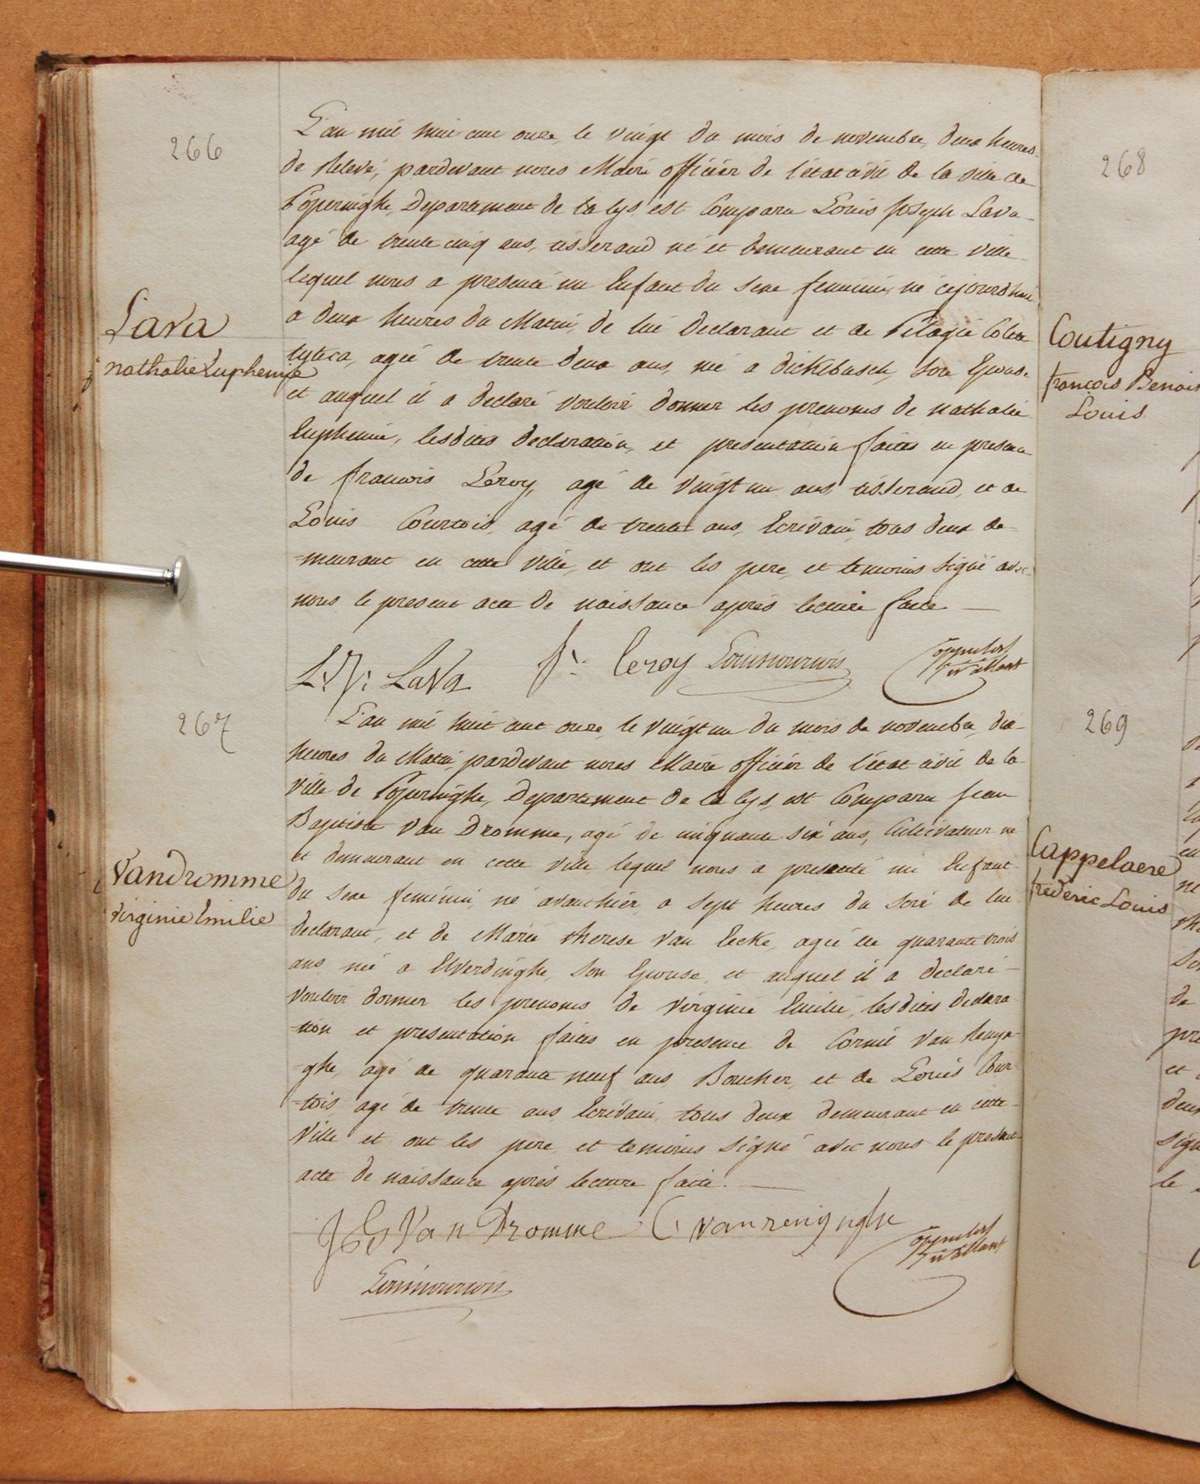 266
Lava
nathalie Euphemie
L'an mil huit cent onze, le vingt du mois de novembre, deux heures
de Relevé, pardevant nous Maire officier de l'état civil de la ville de
Poperinghe, Departement de la Lys est Comparu Louis Joseph Lava
agé de trente cinq ans, tisserand né et demeurant en cette ville
lequel nous a presenté un Enfant du sexe feminin, né cejourd'hui
a deux heures du Matin, de lui Declarant et de Pélagie
agée de trente deux ans, née a dickebusch, son Epouse
et auquel il a declaré vouloir donner les prenoms de nathalie
Euphemie, lesdites declaration, et presentation faites en presence
de francois Leroy, agé de vingt un ans tisserand, et de
Louis Courtois, agé de trente ans, Ecrivain, tous deux de-
-meurant en cette ville, et ont les pere, et temoins signé avec
nous le present acte de naissance après lecture faite —
L. J. LaVa fr. leroy Louis Courtois
267
Vandromme
Virginie Emilie
L'an mil huit cent onze, le vingt un du mois de novembre, dix
heures du Matin, pardevant nous Maire officier de l'état civil de la
ville de Poperinghe, Departement de la Lys, est Comparu Jean
Baptiste Van Dromme, agé de cinquante six ans, Cultivateur né
et demeurant en cette ville lequel nous a presenté un Enfant
du sexe feminin, né avanthier, a sept heures du soir de lui
declarant, et de Marie therese Van Eecke, agée de quarante trois
ans, née a Elverdinghe, son Epouse, et auquel il a declaré
vouloir donner les prenoms de Virginie Emilie, lesdites declara
-tion et presentation faites en presence de Cornil Van Renyn-
-ghe, agé de quarante neuf ans Boucher, et de Louis Cour-
-tois agé de trente ans Ecrivain, tous deux demeurant en cette
Ville et ont les pere et temoins signé avec nous le present
acte de naissance après lecture faite. —
J B Van Dromme C. vanrenynghe
Louis Courtois
268
Coutigny
francois Benoit
Louis
269
Cappelaere
fréderic Louis